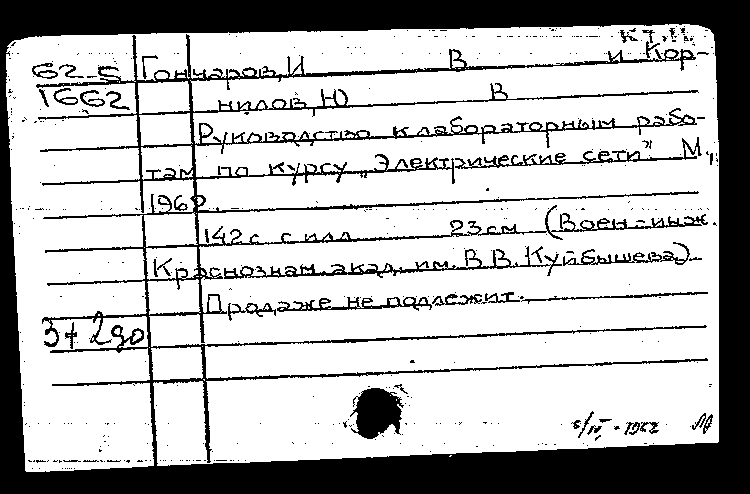 КТ.П.
62-5 Гончаров, И В и Кор-
1662 нилов, Ю В
Руководство к лабораторным рабо-
там по курсу „Электрические сети". М.,
1962.
142 с. с илл. 23 см (Воен-инж.
Краснознам. акад. им. В.В. Куйбышева)
Продаже не подлежит.
3+2до
/IV - 1962